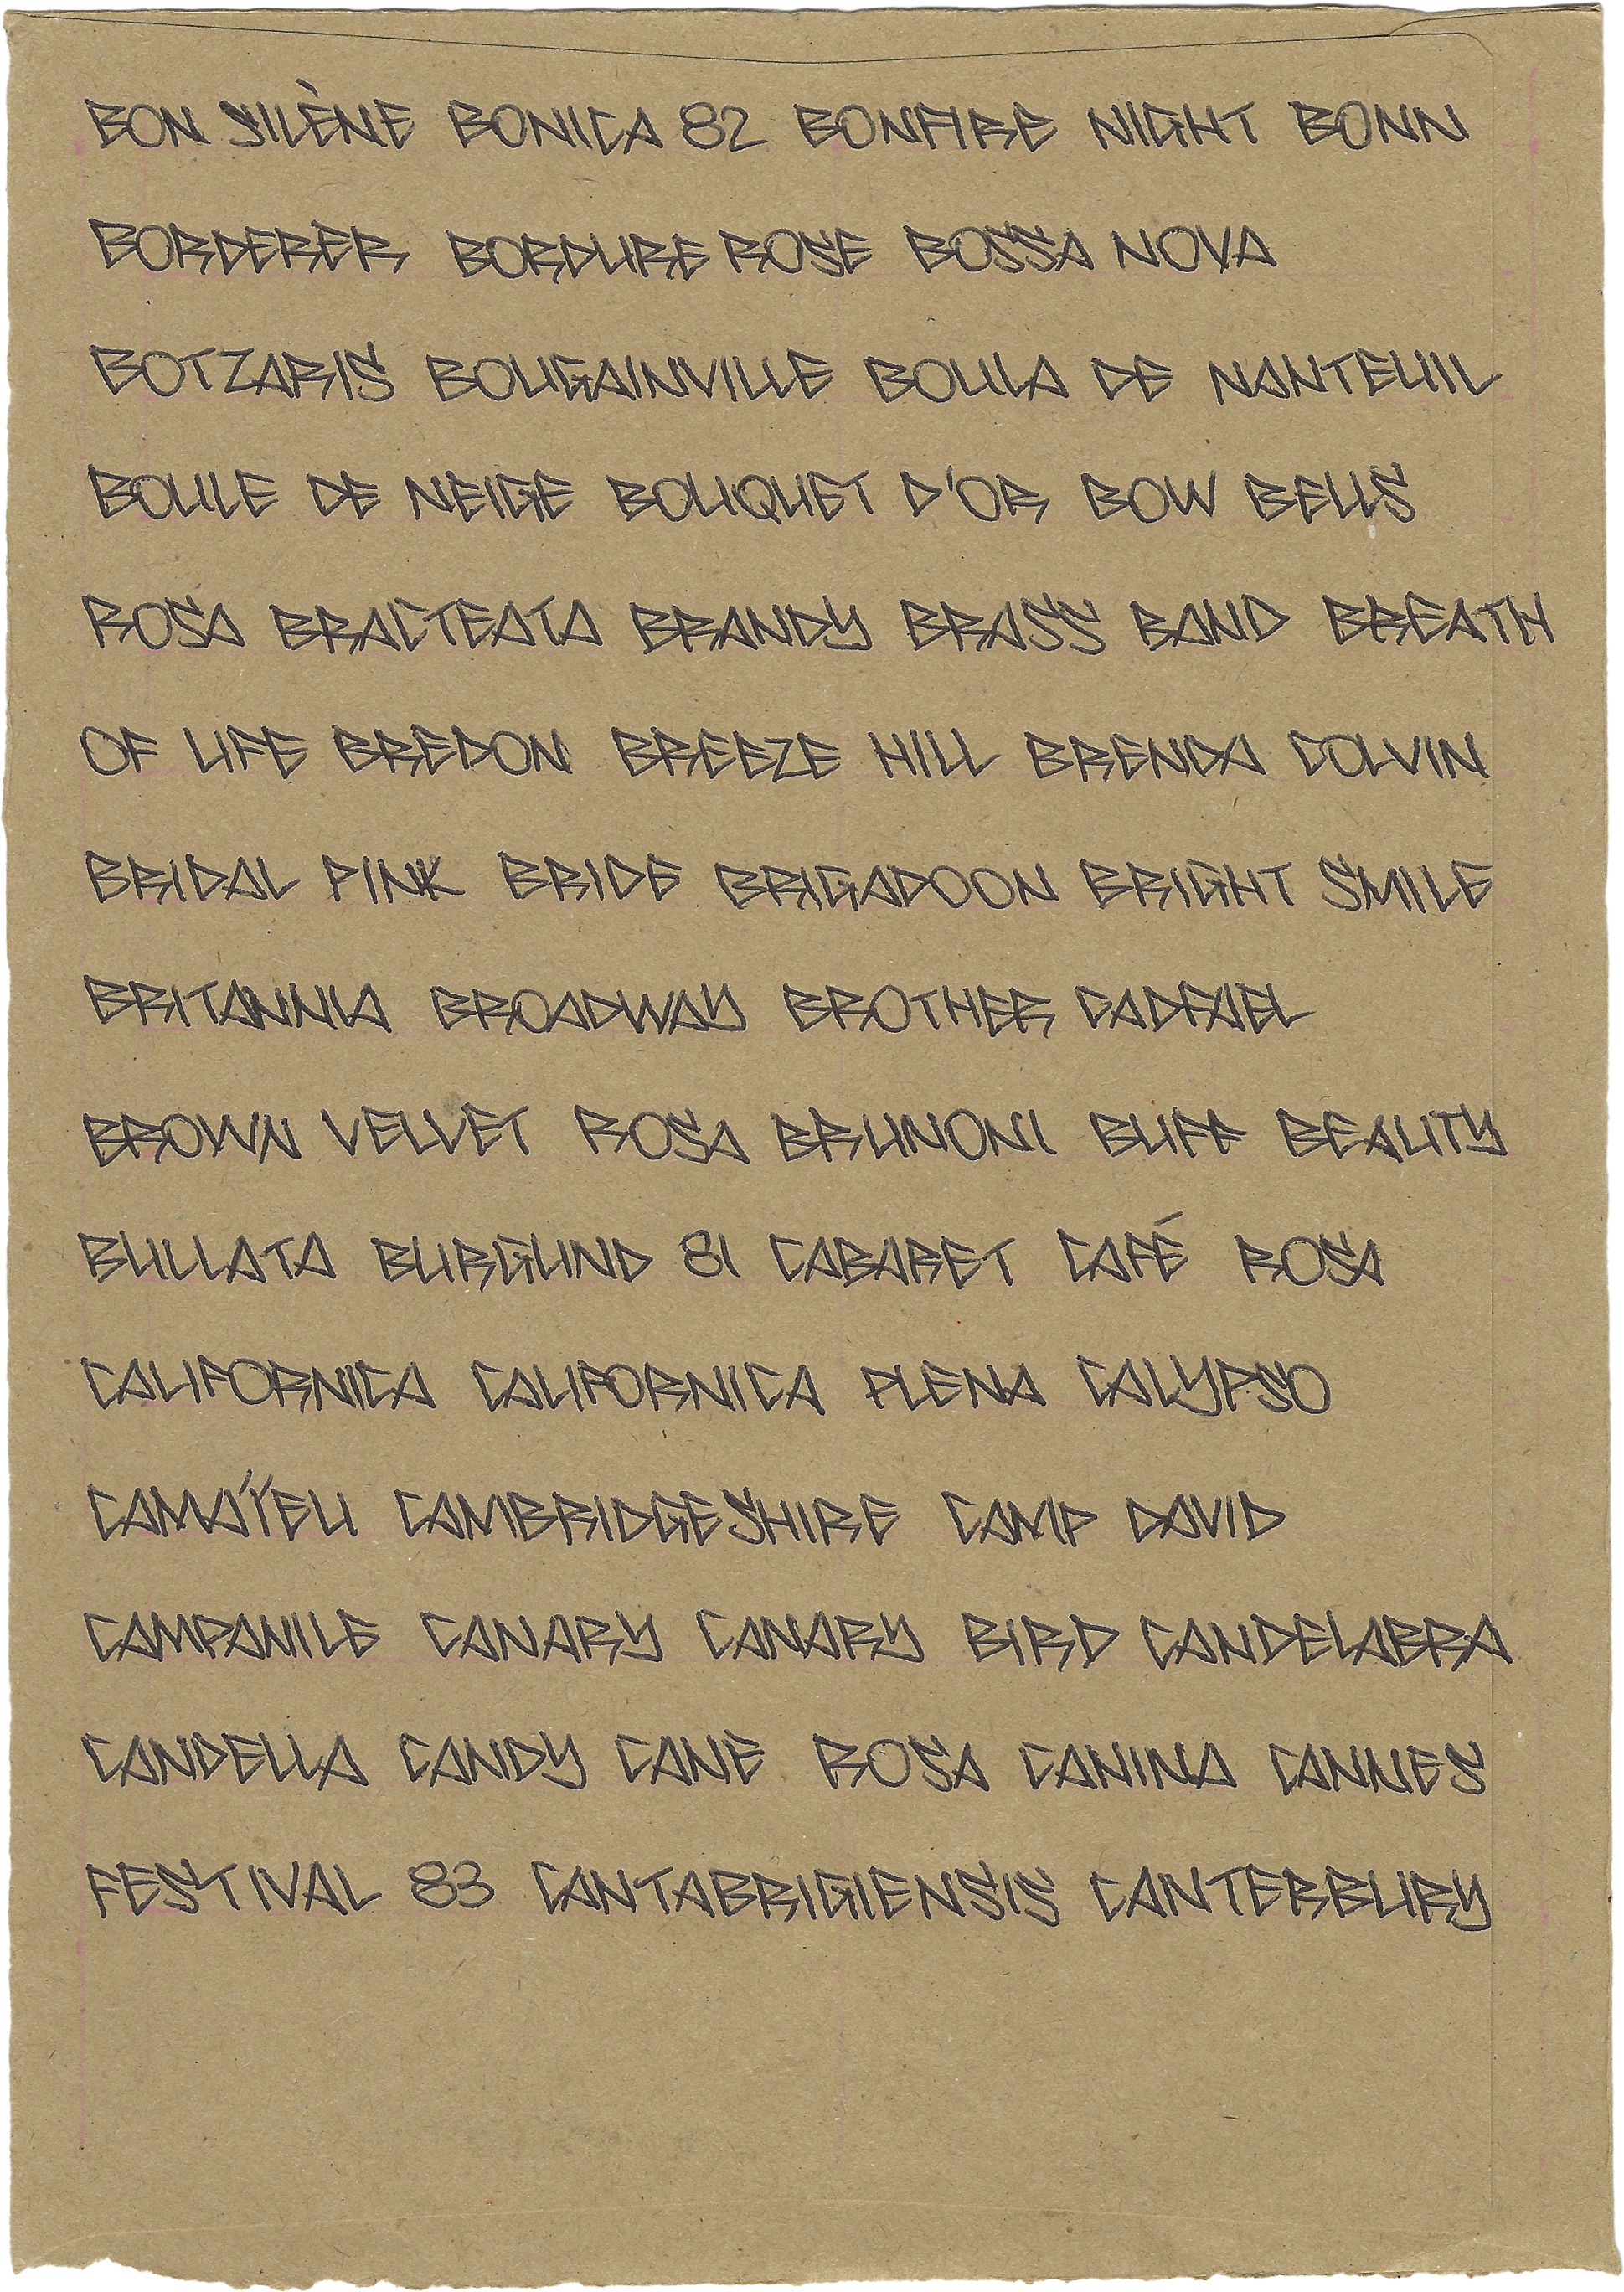 BON SILÈNE BONICA 82 BONFIRE NIGHT BONN
BORDERER BORDURE ROSE BOSSA NOVA
BOTZARIS BOUGAINVILLE BOULA DE NANTEUIL
BOULE DE NEIGE BOUQUET D'OR BOW BELLS
ROSA BRACTEATA BRANDY BRASS BAND BREATH
OF LIFE BREDON BREEZE HILL BRENDA COLVIN
BRIDAL PINK BRIDE BRIGADOON BRIGHT SMILE
BRITANNIA BROADWAY BROTHER CADFAEL
BROWN VELVET ROSA BRUNONI BUFF BEAUTY
BULLATA BURGUND 81 CABARET CAFÉ ROSA
CALIFORNICA CALIFORNICA PLENA CALYPSO
CAMAÝEU CAMBRIDGESHIRE CAMP DAVID
CAMPANILE CANARY CANARY BIRD CANDELABRA
CANDELLA CANDY CANE ROSA CANINA CANNES
FESTIVAL 83 CANTABRIGIENSIS CANTERBURY